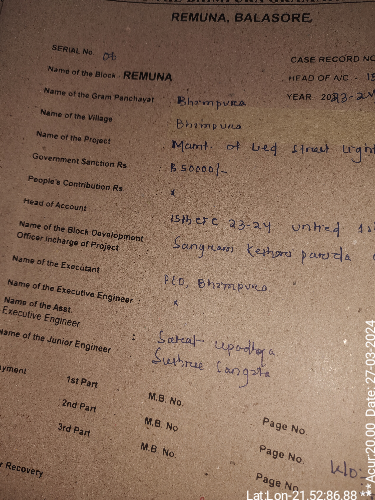 REMUNA, BALASORE,
SERIAL No. 04
CASE RECORD NO
Name of the Block - REMUNA
HEAD OF A/C - 15
Name of the Gram Panchayat Bhimpura
YEAR 2023-24
Name of the Village Bhimpura
Name of the Project Maint. of Led Street Light
Government Sanction Rs : 50000/-
People's Contribution Rs : x
Head of Account 15th CFC 23-24 untied
Name of the Block Development
Officer Incharge of Project Sangram Keshari panda
Name of the Executant PEO, Bhimpura
Name of the Executive Engineer : x
Name of the Asst.
Executive Engineer : Saroj Upadhya
Name of the Junior Engineer : Sushree Sangita
1st Part M.B. No. Page No.
2nd Part M.B. No Page No.
3rd Part M.B. No. Page No.
Recovery
Lat:Lon-21.52:86.88 ***Acur:20.00 Date: 27-03-2024